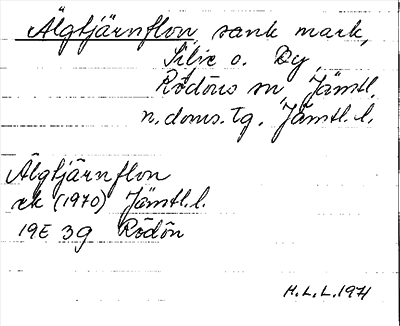 Älgtjärnflon, sank mark,
Silje o. By
Rödöns sn, Jämtl.
n. doms. tg. Jämtl. l.
Älgtjärnflon
ek (1970) Jämtl. l.
19E 3g Rödön
H. L. L. 1971